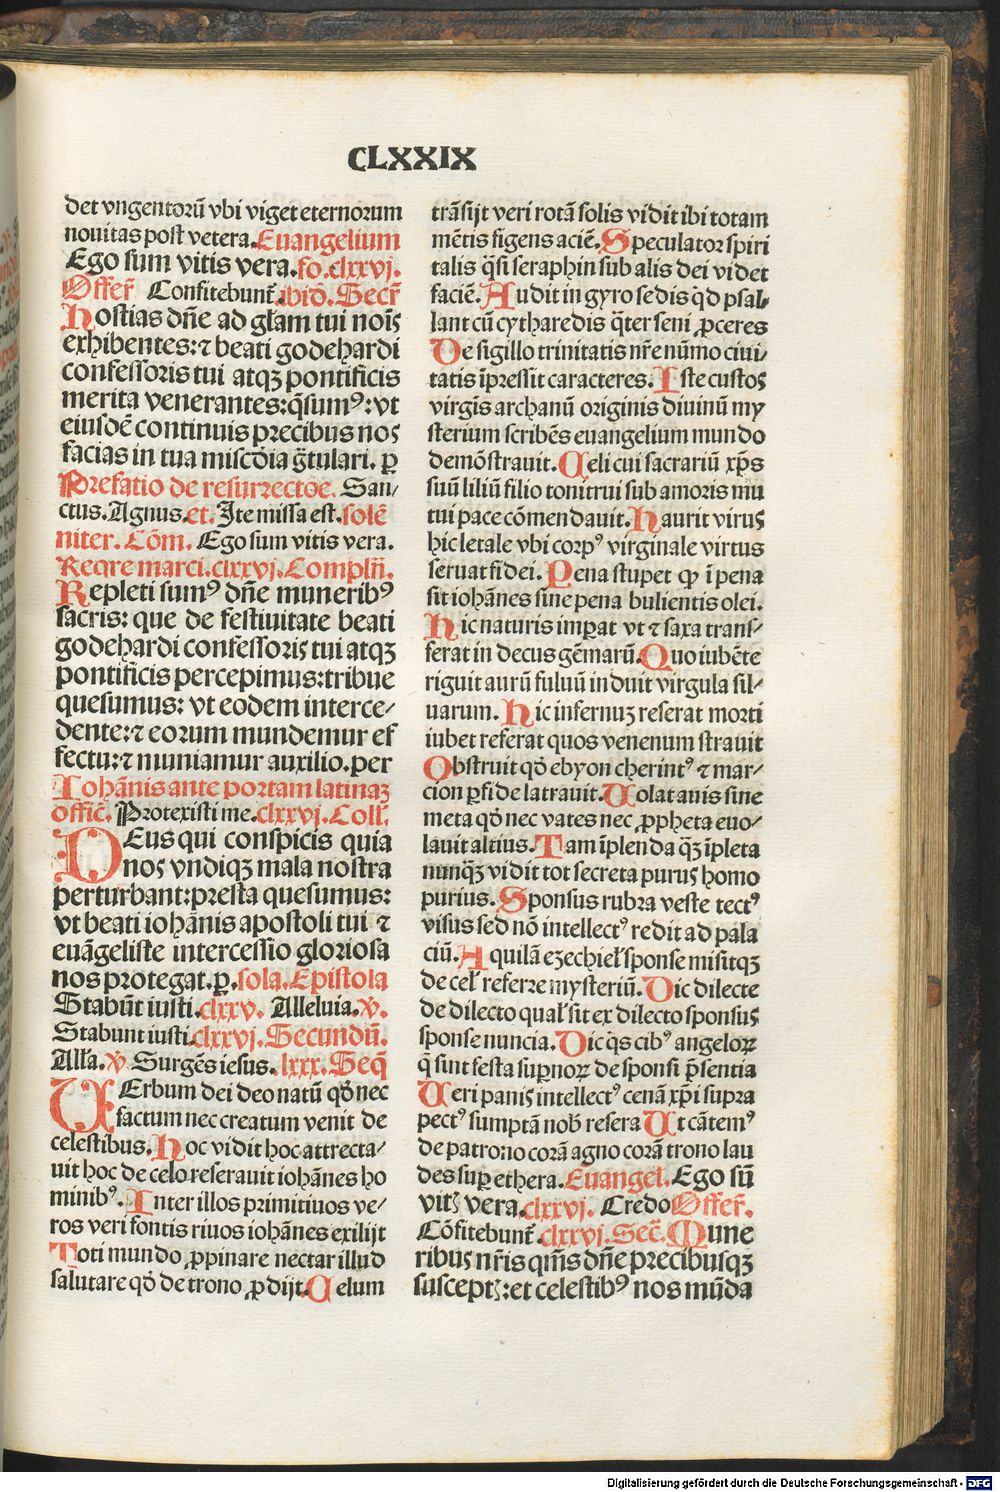 CLXXIX
det vngentorū vbi viget eternorum
nouitas post vetera. Euangelium
Ego sum vitis vera. fo. clxxvj.
Offer̄ Confitebunt̄. ibid̄. Secr̄
Hostias dn̄e ad gl̄am tui noīs
exhibentes: ⁊ beati godehardi
confessoris tui atqꝫ pontificis
merita venerantes: q̄sumꝰ: vt
eiusdē continuis precibus nos
facias in tua mīscd̄ia gr̄tulari. ꝑ
Prefatio de resurrectōe. San⸗
ctus. Agnus. et. Ite missa est. solē
niter. Cōm. Ego sum vitis vera.
Reqre marci. clxxvj. Compln̄.
Repleti sumꝰ dn̄e muneribꝰ
sacris: que de festiuitate beati
godehardi confessoris tui atqꝫ
pontificis percepimus: tribue
quesumus: vt eodem interce⸗
dente: ⁊ eorum mundemur ef
fectu: ⁊ muniamur auxilio. per
Iohānis ante portam latinaꝫ
offic̄. Protexisti me. clxxvj. Coll.
DEus qui conspicis quia
nos vndiqꝫ mala nostra
perturbant: presta quesumus:
vt beati iohānis apostoli tui ⁊
euāgeliste intercessio gloriosa
nos protegat. ꝑ. sola. Epistola
Stabūt iusti. clxxv. Alleluia. v̄.
Stabunt iusti. clxxvj. Secundū.
Alla. v̄ Surgēs iesus. lxxx. Seq̄
VErbum dei deo natū qd̄ nec
factum nec creatum venit de
celestibus. Hoc vidit hoc attrecta⸗
uit hoc de celo reserauit iohānes ho
minibꝰ. Inter illos primitiuos ve⸗
ros veri fontis riuos iohānes exilijt
Toti mundo ꝓpinare nectar illud
salutare qd̄ de trono ꝓdijt. Celum
trāsijt veri rotā solis vidit ibi totam
mētis figens aciē. Speculator spiri
talis q̄si seraphin sub alis dei videt
faciē. Audit in gyro sedis qd̄ psal⸗
lant cū cytharedis q̄ter seni ꝓceres
De sigillo trinitatis nr̄e nūmo ciui⸗
tatis īpressit caracteres. Iste custos
virgīs archanū originis diuinū my
sterium scribēs euangelium mundo
demōstrauit. Celi cui sacrariū xp̄s
suū liliū filio tonitrui sub amoris mu
tui pace cōmendauit. Haurit virus
hic letale vbi corpꝰ virginale virtus
seruat fidei. Pena stupet qꝫ ī pena
sit iohānes sine pena bulientis olei.
Hic naturis imꝑat vt ⁊ saxa trans⸗
ferat in decus gēmarū. Quo iubēte
riguit aurū fuluū induit virgula sil⸗
uarum. Hic infernuꝫ reserat morti
iubet referat quos venenum strauit
Obstruit qd̄ ebyon cherintꝰ ⁊ mar⸗
cion ꝑfide latrauit. Volat auis sine
meta qd̄ nec vates nec ꝓpheta euo⸗
lauit altius. Tam īplenda q̄ꝫ īpleta
nunq̄ꝫ vidit tot secreta purus homo
purius. Sponsus rubra veste tectꝰ
visus sed nō intellectꝰ redit ad pala
ciū. Aquilā ezechieł sponse misitqꝫ
de ceł referre mysteriū. Dic dilecte
de dilecto quał sit ex dilecto sponsus
sponse nuncia. Dic q̄s cibꝰ angeloꝝ
q̄ sunt festa suꝑnoꝝ de sponsi p̄sentia
Veri panis intellectꝰ cenā xp̄i supra
pectꝰ sumptā nob̄ resera Vt cātemꝰ
de patrono corā agno corā trono lau
des suꝑ ethera. Euangel. Ego sū
vitꝭ vera. clxxvj. Credo Offer̄.
Cōfitebunt̄. clxxvj. Sec̄. Mune
ribus nr̄is qm̄s dn̄e precibusqꝫ
susceptꝭ: et celestibꝰ nos mūda
Digitalisierung gefördert durch die Deutsche Forschungsgemeinschaft - DFG